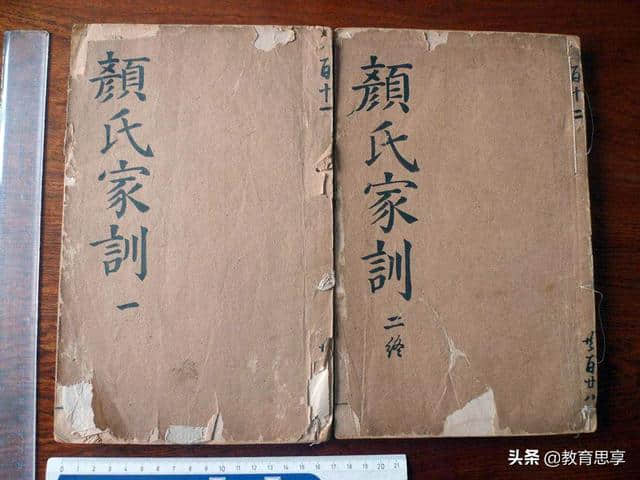 顏氏家訓 一
百十一
顏氏家訓 二終
百十二
共百廿八
0 1 2 3 4 5 6 7 8 9 10 11 12 13 14 15 16 17 18 19 20 21
头条 @教育思享